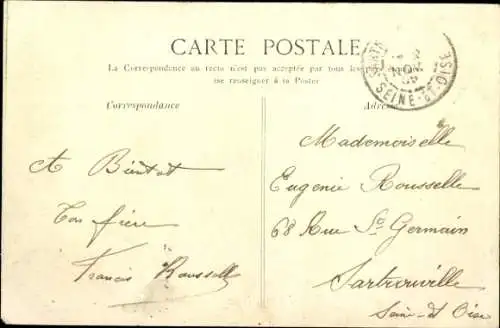 CARTE POSTALE
La Correspondance au recto n'est pas acceptée par tous les pays étrangers
(se renseigner à la Poste)
Correspondance
Adresse
NOV
SEINE-ET-OISE
A Bientot
Ton frère
Francis Rousselle
Mademoiselle
Eugenie Rousselle
68 Rue St Germain
Sartrouville
Seine et Oise